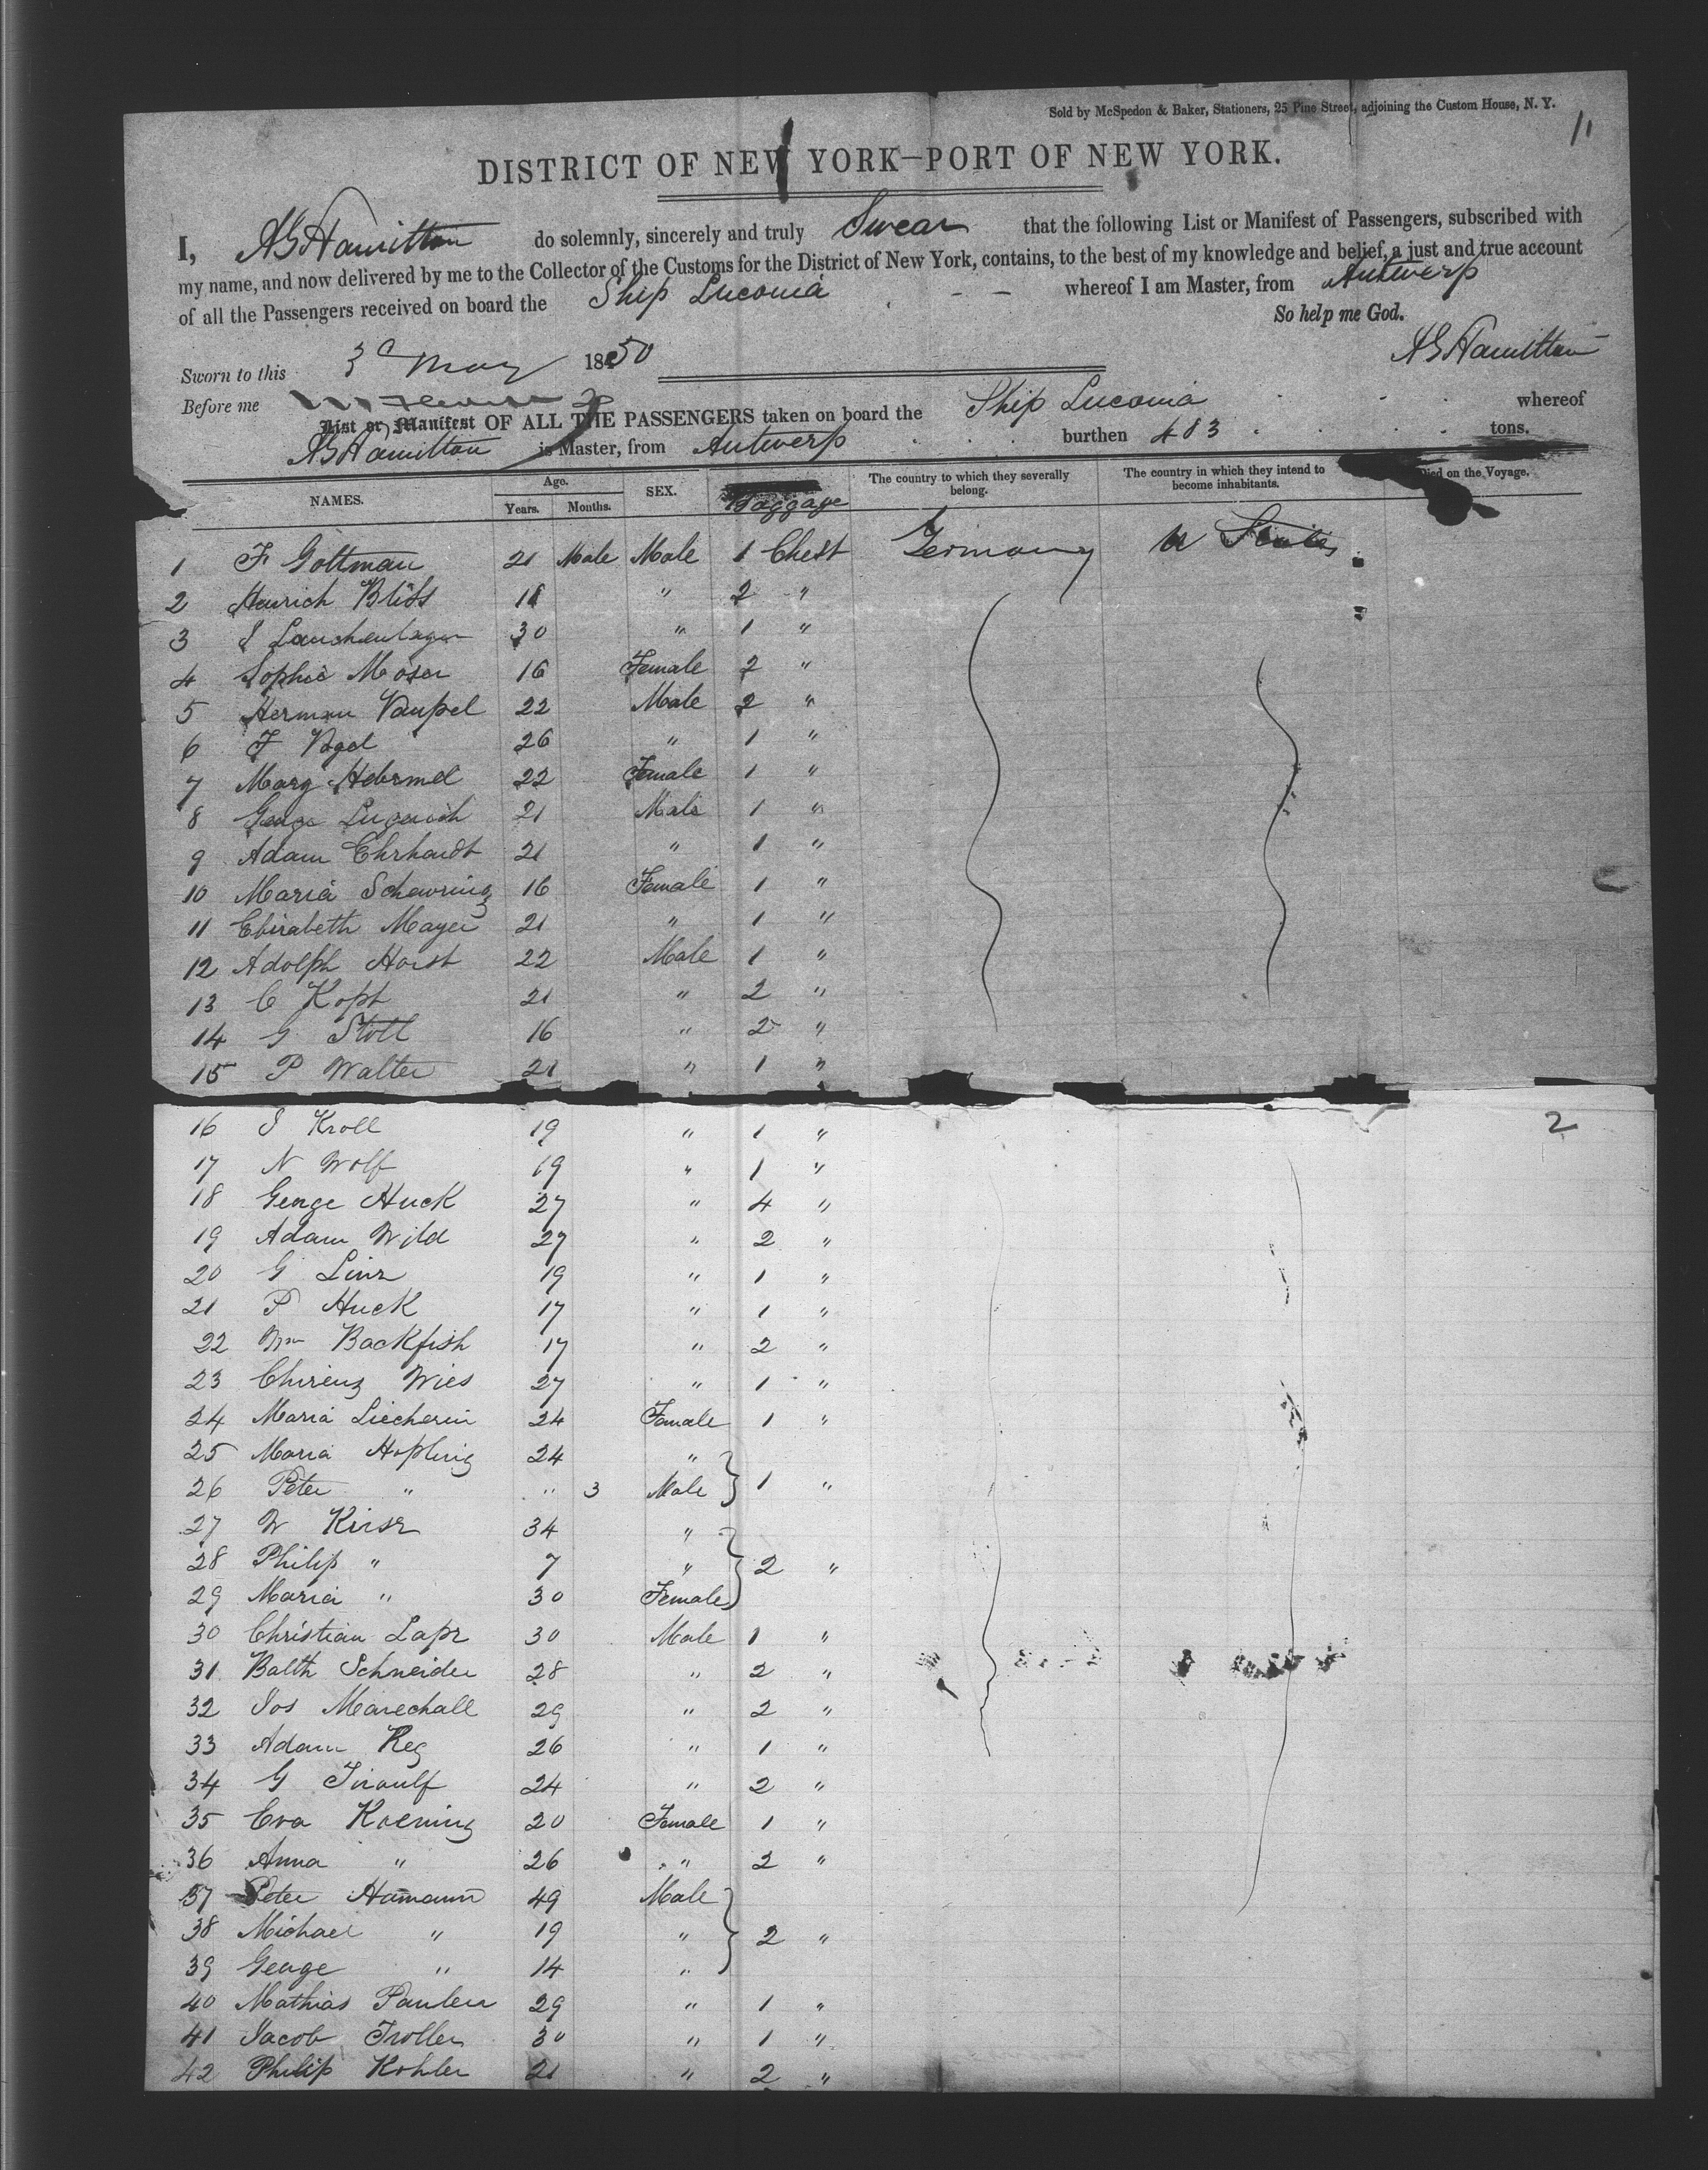 Sold by McSpedon & Baker, Stationers, 25 Pine Street, adjoining the Custom House, N. Y.
11
DISTRICT OF NEW YORK—PORT OF NEW YORK.
I, AG Hamilton do solemnly, sincerely and truly Swear that the following List or Manifest of Passengers, subscribed with
my name, and now delivered by me to the Collector of the Customs for the District of New York, contains, to the best of my knowledge and belief, a just and true account
of all the Passengers received on board the Ship Luconia whereof I am Master, from Antwerp
So help me God.
AG Hamilton
Sworn to this 3d May 1850
Before me
List or Manifest OF ALL THE PASSENGERS taken on board the Ship Luconia whereof
AG Hamilton is Master, from Antwerp burthen 483 tons.
NAMES. Age. Years. Months. SEX. Baggage The country to which they severally belong. The country in which they intend to become inhabitants. Died on the Voyage.
1 F Gottman 21 Male Male 1 Chest Germany U States
2 Henrich Bliss 18 " 2 "
3 30 " 1 "
4 Sophie Moser 16 Female 2 "
5 Herman Vaupel 22 Male 2 "
6 F Vogel 26 " 1 "
7 Marg Hebrmel 22 Female 1 "
8 George 21 Male 1 "
9 Adam Ehrhardt 21 " 1 "
10 Maria Schewring 16 Female 1 "
11 Elizabeth Mayer 21 " 1 "
12 Adolph Horst 22 Male 1 "
13 C Kopt 21 " 2 "
14 G Stoll 16 " 2 "
15 P Walter 21 " 1 "
2
16 J Kroll 19 " 1 "
17 N Wolf 19 " 1 "
18 George Huck 27 " 4 "
19 Adam Wild 27 " 2 "
20 G Linz 19 " 1 "
21 P Huck 17 " 1 "
22 Wm Backfish 17 " 2 "
23 Wies 27 " 1 "
24 Maria Liecherin 24 Female 1 "
25 Maria Hopling 24 "
26 Peter " " 3 Male 1 "
27 W Kirsz 34 "
28 Philip " 7 " 2 "
29 Maria " 30 Female
30 Christian Lapz 30 Male 1 "
31 Balth Schneider 28 " 2 "
32 Jos Marechall 29 " 2 "
33 Adam Reg 26 " 1 "
34 G 24 " 2 "
35 Eva Koening 20 Female 1 "
36 Anna " 26 " 2 "
37 Peter Hamann 49 Male
38 Michael " 19 " 2 "
39 George " 14 "
40 Mathias Paulen 29 " 1 "
41 Jacob Troller 30 " 1 "
42 Philip Kohler 21 " 2 "